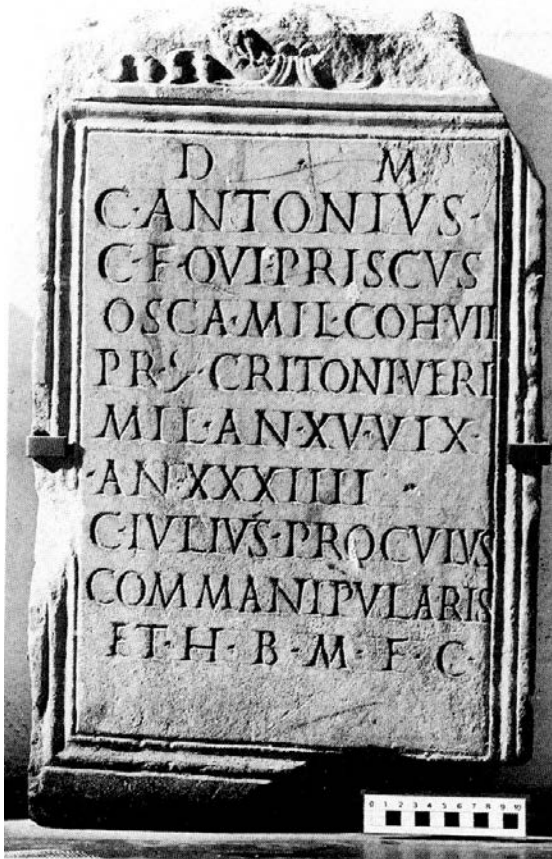 D M
C·ANTONIVS·
C·F·QVI·PRISCVS
OSCA·MIL·COH·VII
PR· CRITONI·VERI
MILAN·XV·VIX·
·AN·XXXIIII
C·IVLIVS·PROCVLVS
COMMANIPVLARIS
ET·H·B·M·F·C·
0 1 2 3 4 5 6 7 8 9 10